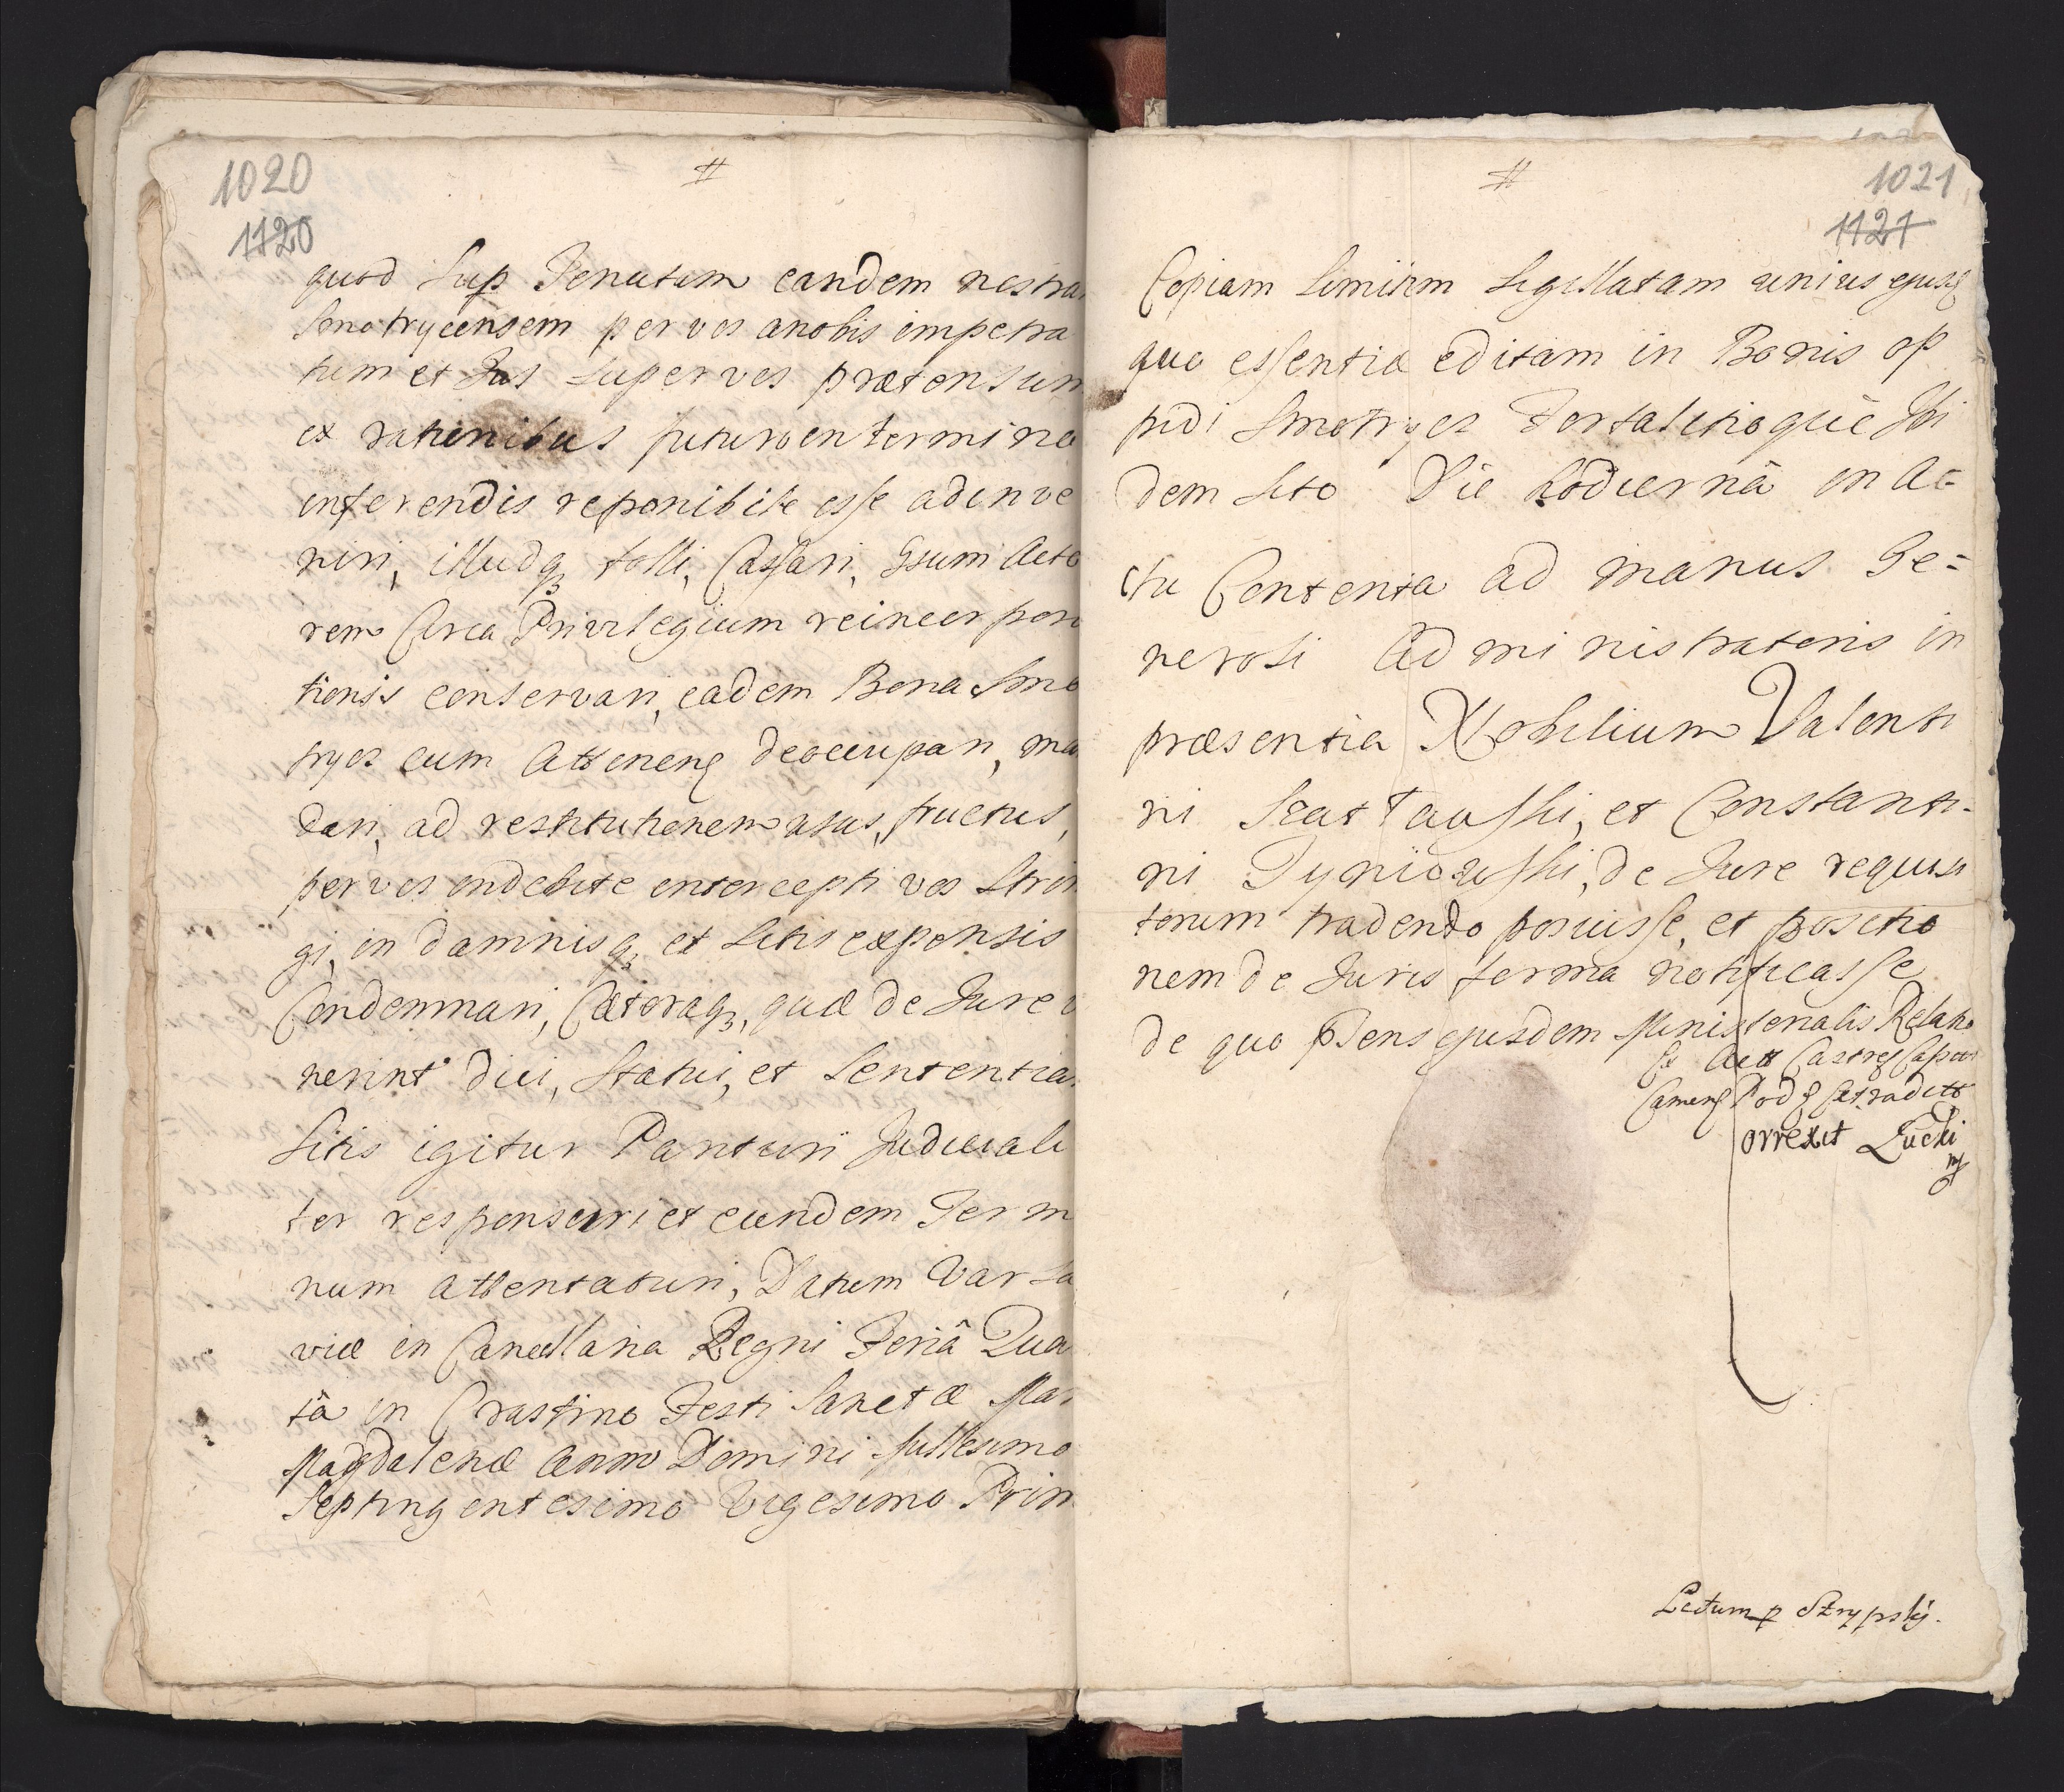 1020
#
1120
quod sup Tenutam eandem nostra
Smotrycensem per vos a nobis impetra
tum et Jus super vos prætensum
ex rationibus futuro in termino
inferendis reponibile esse ad inve
niri, illudq3 tolli, Cassari, Gsum Acto
rem Circa Privilegium reincorpora
tionis conservari, eadem Bona Smo
trycz cum Attinenę deoccupari, man
dari, ad restitutionem usus, fructus,
per vos indebite intercepti vos strin
gi, in damnisq3 et Litis expensis
Condemnari, Cæteraq3, quæ de Jure v
nerint dici, statui, et Sententia
Sitis igitur Parituri Judiciali
ter responsuri et eundem Term
num attentaturi, Datum Varsa
viæ in Cancellaria Regni Feriâ Quar
tâ in Crastino Festi Sanctæ Mar
Magdalenæ Anno Domini Millesimo
Septingentesimo Vigesimo Prim
#
1021
1121
Copiam Similem Sigillatam unius ejusq
que essentiæ editam in Bonis op
pidi Smotrycz Fortalitioquè Ibi
dem sito Die hodiernâ in Ac=
ctu Contenta ad manus Ge=
nerosi Administratoris in
præsentia Nobilium Valenti
ni et Constanti-
ni Tyniowski, de Jure requisi
torum tradendo posuisse, et positio
nem de Juris forma notificasse
de quo PSens ejusdem Ministerialis Relatio
Ex Actt Castreę Capit
Cameneę Podę Extradict
orrexit Łucki
mp
Lectum p Skrypskj.